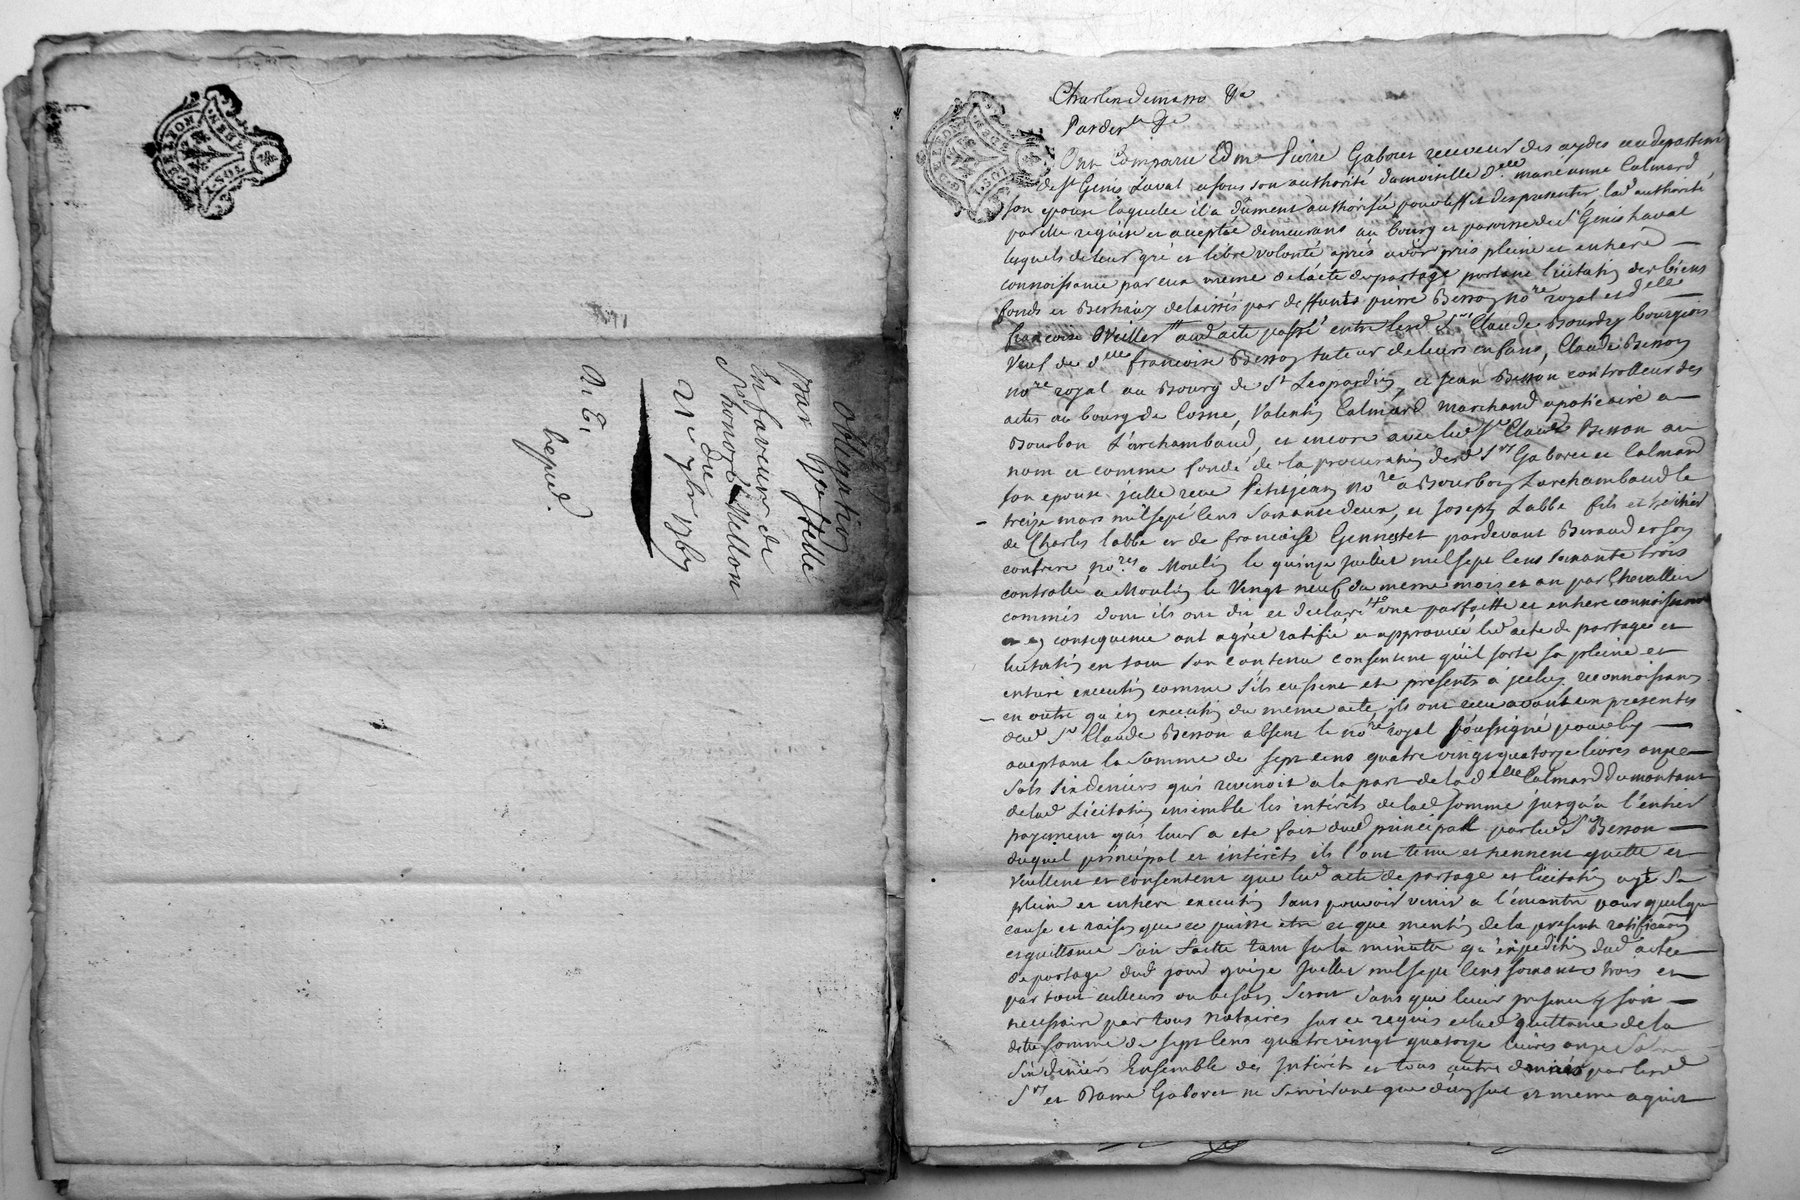 GN. DE LYON
1. SOL.
DEN.
Obligation
par
En faveur de
Sr honoré Mellon
du
21e 7bre 1769
GN. DE LYON
1. SOL.
DEN.
Pardev.
Ont Comparu Edme Pierre Gaboret receveur des aydes au departem
de St Genis Laval, et sous son authorité damoiselle d.elle marie anne Calmard
son epouse laquelle il a dument authorisée pour l'effet des presentes, lad authorité
par elle requise et acceptée demeurans au bourg et paroisse de St Genis Laval
lesquels de leur gré et libre volonté après avoir pris pleine et entiere
connoissance par eux meme de l'acte de partage portant licitation des biens
fonds et delaissés par deffunts pierre Besson nore royal et delle
francoise aud acte passé entre lesd Srs Claude Bourdy bourgeois
Veuf de delle francoise Besson tuteur de leurs enfans, Claude Besson
nore royal au Bourg de St Leopardin, et Jean Besson controlleur des
actes au bourg de Cosne, Valentin Calmard marchand apoticaire a
Bourbon L'archambaud, et encore avec led Sr Claude Besson au
nom et comme fondé de la procuration desd Srs Gaboret et Calmard
son epouse jcelle recue Petitjean nore a Bourbon Larchambaud le
treize mars mil sept cens soixante deux, et Joseph Labbe fils et heritier
de Charles labbe et de francoise Gennestet pardevant Beraud et son
confrere nores a Moulin le quinze Juillet mil sept cens soixante trois
controllé a Moulin le Vingt neuf du meme mois et an par Chevallier
commis dont ils ont dit et declaré avoir une parfaitte et entiere connoissance
en consequence ont agréé ratiffié et approuvé led acte de partage et
licitation en tout son contenu consentent qu'il sorte sa pleine et
entiere execution comme s'ils eussent eté presents a jceluy reconnoissans
en outre qu'en execution du meme acte ils ont recu avant ces presentes
dud Sr Claude Besson absent le nore royal soussigné pour luy
aceptant la somme de sept cens quatre vingt quatorze livres onze
sols six deniers qui revenoit a la part de lad delle Calmard du montant
de lad Licitation ensemble les intérêts de lad somme jusqu'a l'entier
payement qui leur a eté fait dud principal par led Sr Besson
duquel principal et intérêts ils l'ont tenu et tiennent quitte et
Veullent et consentent que led acte de partage et licitation aye sa
pleine et entiere execution sans pouvoir venir a l'encontre pour quelque
cause et raison que ce puisse etre et que mention de la presente ratification
et quittance soit faitte tant sur la minutte qu'expedition dud acte
de partage dud jour quinze Juillet mil sept cens soixante trois et
par tout ailleurs ou besoin seroit sans que leur presence y soit
necessaire par tous notaires sur ce requis et lad quittance de la
ditte somme de sept cens quatre vingt quatorze livres onze sols
six deniers Ensemble des Intérêts et tous autre par lesd
Srs et Dame Gaboret ne serviront que d'un seul et meme aquit